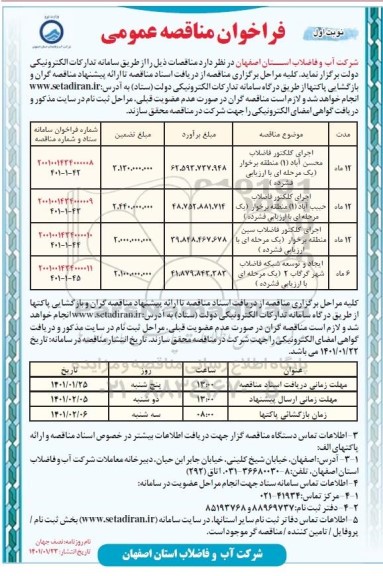 نوبت اول
فراخوان مناقصه عمومی
شرکت آب و فاضلاب اســتان اصفهان در نظر دارد مناقصات ذیل را از طریق سامانه تدارکات الکترونیکی
دولت برگزار نماید. کلیه مراحل برگزاری مناقصه از دریافت اسناد مناقصه تا ارائه پیشنهاد مناقصه گران و
بازگشایی پاکتها از طریق درگاه سامانه تدارکات الکترونیکی دولت (ستاد) به آدرس: www.setadiran.ir
انجام خواهد شد و لازم است مناقصه گران در صورت عدم عضویت قبلی، مراحل ثبت نام در سایت مذکور و
دریافت گواهی امضای الکترونیکی را جهت شرکت در مناقصه محقق سازند.
مدت موضوع مناقصه مبلغ برآورد مبلغ تضمین شماره فراخوان سامانه ستاد و شماره مناقصه
۱۲ ماه اجرای کلکتور فاضلاب محسن آباد (۱) منطقه برخوار (یک مرحله ای با ارزیابی فشرده) ۶۲،۵۹۳،۷۳۷،۹۴۸ ۳،۱۳۰،۰۰۰،۰۰۰ ۲۰۰۱۰۰۱۴۳۴۰۰۰۰۰۸ ۴۰۱-۱-۴۲
۱۲ ماه اجرای کلکتور فاضلاب حبیب آباد (۱) منطقه برخوار (یک مرحله ای با ارزیابی فشرده) ۴۸،۷۵۲،۸۸۱،۷۱۴ ۲،۴۴۰،۰۰۰،۰۰۰ ۲۰۰۱۰۰۱۴۳۴۰۰۰۰۰۹ ۴۰۱-۱-۴۳
۱۲ ماه اجرای کلکتور فاضلاب سین منطقه برخوار (یک مرحله ای با ارزیابی فشرده) ۳۹،۸۴۸،۴۶۷،۶۷۸ ۲،۰۰۰،۰۰۰،۰۰۰ ۲۰۰۱۰۰۱۴۳۴۰۰۰۰۱۰ ۴۰۱-۱-۴۴
۶ ماه ایجاد و توسعه شبکه فاضلاب شهر گرگاب ۲ (یک مرحله ای با ارزیابی فشرده) ۴۱،۸۷۹،۸۴۲،۲۸۳ ۲،۱۰۰،۰۰۰،۰۰۰ ۲۰۰۱۰۰۱۴۳۴۰۰۰۰۱۱ ۴۰۱-۱-۴۵
کلیه مراحل برگزاری مناقصه از دریافت اسناد مناقصه تا ارائه پیشنهاد مناقصه گران و بازگشایی پاکتها
از طریق درگاه سامانه تدارکات الکترونیکی دولت (ستاد) به آدرس: www.setadiran.ir انجام خواهد
شد و لازم است مناقصه گران در صورت عدم عضویت قبلی، مراحل ثبت نام در سایت مذکور و دریافت
گواهی امضای الکترونیکی را جهت شرکت در مناقصه محقق سازند. تاریخ انتشار مناقصه در سامانه: تاریخ
۱۴۰۱/۰۱/۲۲ می باشد.
عنوان ساعت روز تاریخ
مهلت زمانی دریافت اسناد مناقصه ۱۳:۰۰ پنج شنبه ۱۴۰۱/۰۱/۲۵
مهلت زمانی ارسال پیشنهاد ۱۳:۰۰ دو شنبه ۱۴۰۱/۰۲/۰۵
زمان بازگشائی پاکتها ۰۸:۰۰ سه شنبه ۱۴۰۱/۰۲/۰۶
۳- اطلاعات تماس دستگاه مناقصه گزار جهت دریافت اطلاعات بیشتر در خصوص اسناد مناقصه و ارائه
پاکتهای الف:
۳-۱- آدرس: اصفهان، خیابان شیخ کلینی، خیابان جابر ابن حیان، دبیرخانه معاملات شرکت آب و فاضلاب
استان اصفهان، تلفن: ۸-۳۶۶۸۰۰۳۰-۰۳۱ (داخلی ۲۹۲)
۴- اطلاعات تماس سامانه ستاد جهت انجام مراحل عضویت در سامانه:
۴-۱- مرکز تماس: ۴۱۹۳۴-۰۲۱
۴-۲- دفتر ثبت نام: ۸۸۹۶۹۷۳۷ و ۸۵۱۹۳۷۶۸
۵- اطلاعات تماس دفاتر ثبت نام سایر استانها، در سایت سامانه (www.setadiran.ir) بخش ثبت نام /
پروفایل / تامین کننده / مناقصه گر موجود است.
شرکت آب و فاضلاب استان اصفهان
نام روزنامه: نصف جهان
تاریخ انتشار: ۱۴۰۱/۰۱/۲۳